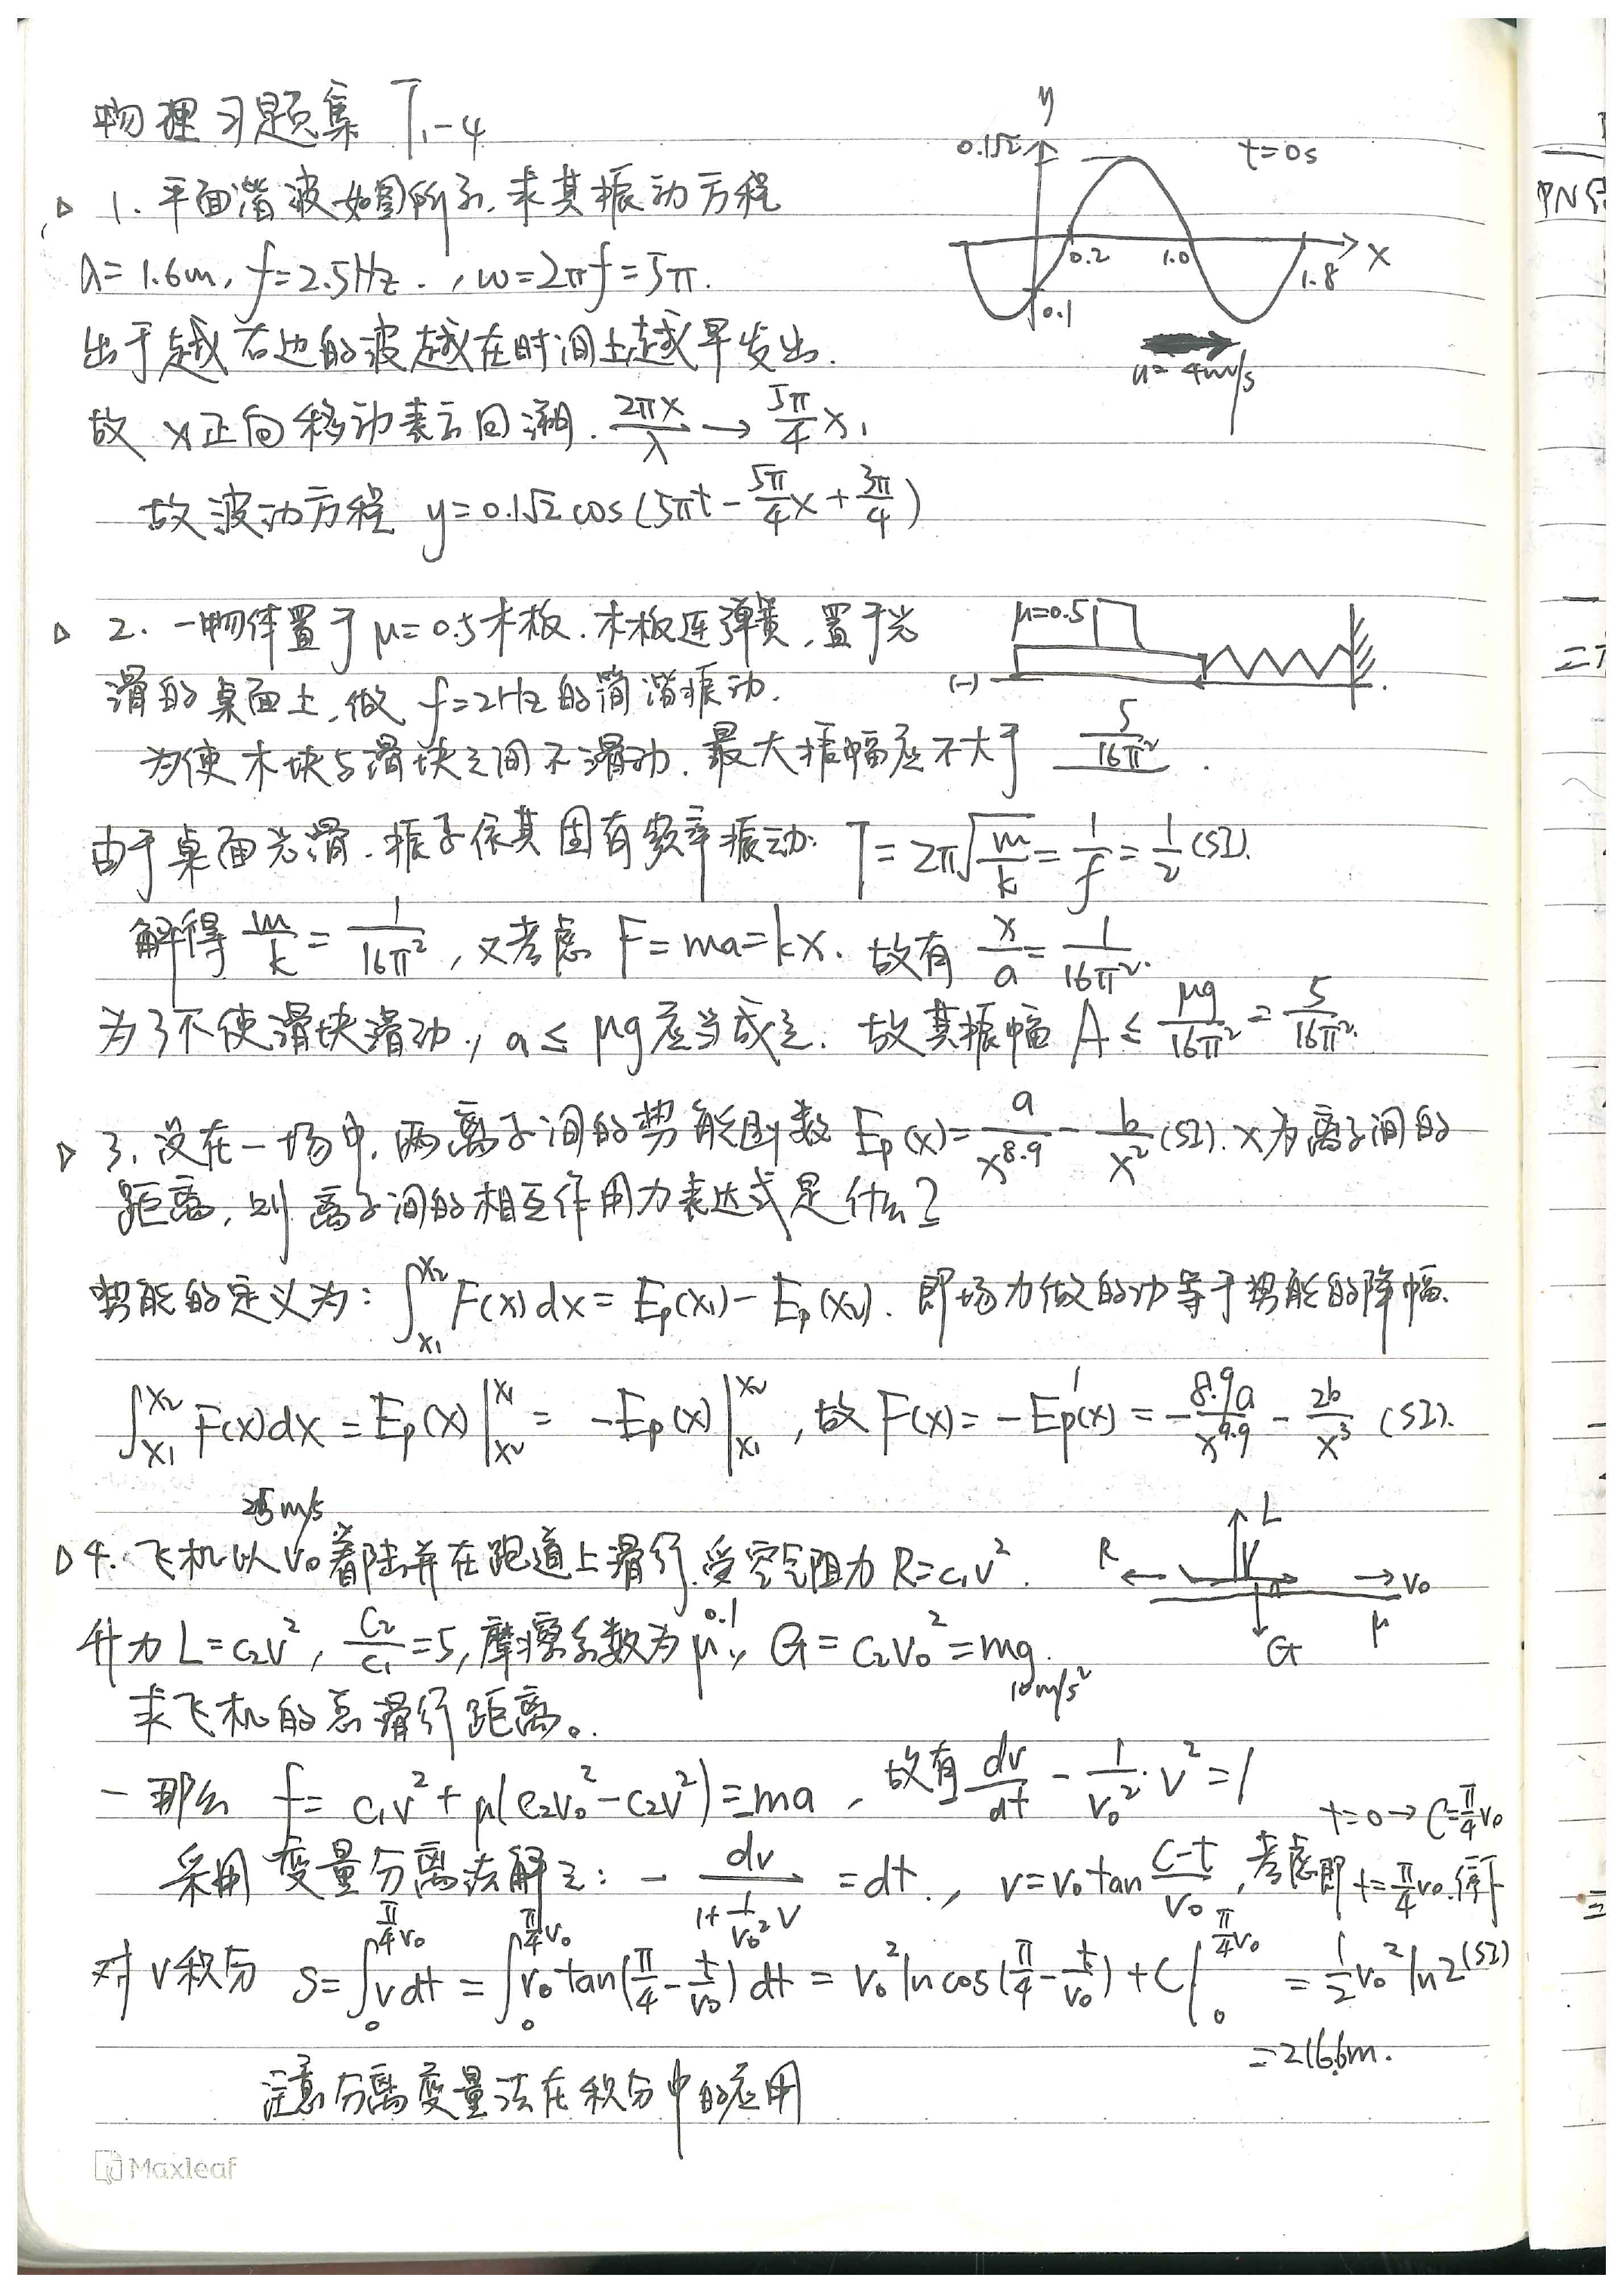 物理习题集 T1-4
1. 平面谐波如图所示, 求其振动方程
λ=1.6m, f=2.5Hz., ω=2πf=5π.
由于越右边的波越在时间上越早发出.
故 x正向移动表示回溯. 2πx/λ → 5π/4 x,
故波动方程 y=0.1√2 cos(5πt-5π/4 x+3π/4)
y
0.1√2
t=0s
0.2
1.0
1.8
x
0.1
u=4m/s
2. 一物体置于μ=0.5木板. 木板连弹簧, 置于光
滑的桌面上, 做f=2Hz的简谐振动.
为使木块与滑块之间不滑动, 最大振幅应不大于 5/16π² .
μ=0.5
(-)
由于桌面光滑. 振子依其固有频率振动: T=2π√(m/k)=1/f=1/2 (SI).
解得 m/k=1/16π², 又考虑 F=ma=kx. 故有 x/a=1/16π².
为了不使滑块滑动, a≤μg应当成立. 故其振幅 A≤μg/16π²=5/16π².
3. 设在一场中, 两离子间的势能函数 Ep(x)=a/x^8.9-b/x² (SI). x为离子间的
距离, 则离子间的相互作用力表达式是什么?
势能的定义为: ∫x1^x2 F(x)dx=Ep(x1)-Ep(x2). 即场力做的功等于势能的降幅.
∫x1^x2 F(x)dx=Ep(x)|x2^x1=-Ep(x)|x1^x2, 故 F(x)=-Ep'(x)=-8.9a/x^9.9-2b/x³ (SI).
25m/s
4. 飞机以v0着陆并在跑道上滑行, 受空气阻力 R=c1v².
升力 L=c2v², c2/c1=5, 摩擦系数为μ, G=c2v0²=mg.
0.1
10m/s²
求飞机的总滑行距离。
R
L
v0
G
μ
一 那么 f=c1v²+μ(c2v0²-c2v²)=ma, 故有 dv/dt-1/v0²·v²=1
采用变量分离法解之: -dv/(1+1/v0² v)=dt, v=v0 tan (c-t)/v0, 考虑 t=0→C=π/4 v0
即 t=π/4 v0. 停下
对v积分 S=∫0^(π/4 v0) v dt=∫0^(π/4 v0) v0 tan(π/4-t/v0) dt=v0² ln cos(π/4-t/v0)+C|0^(π/4 v0)=1/2 v0² ln2 (SI)
=216.6m.
注意分离变量法在积分中的应用
Maxleaf